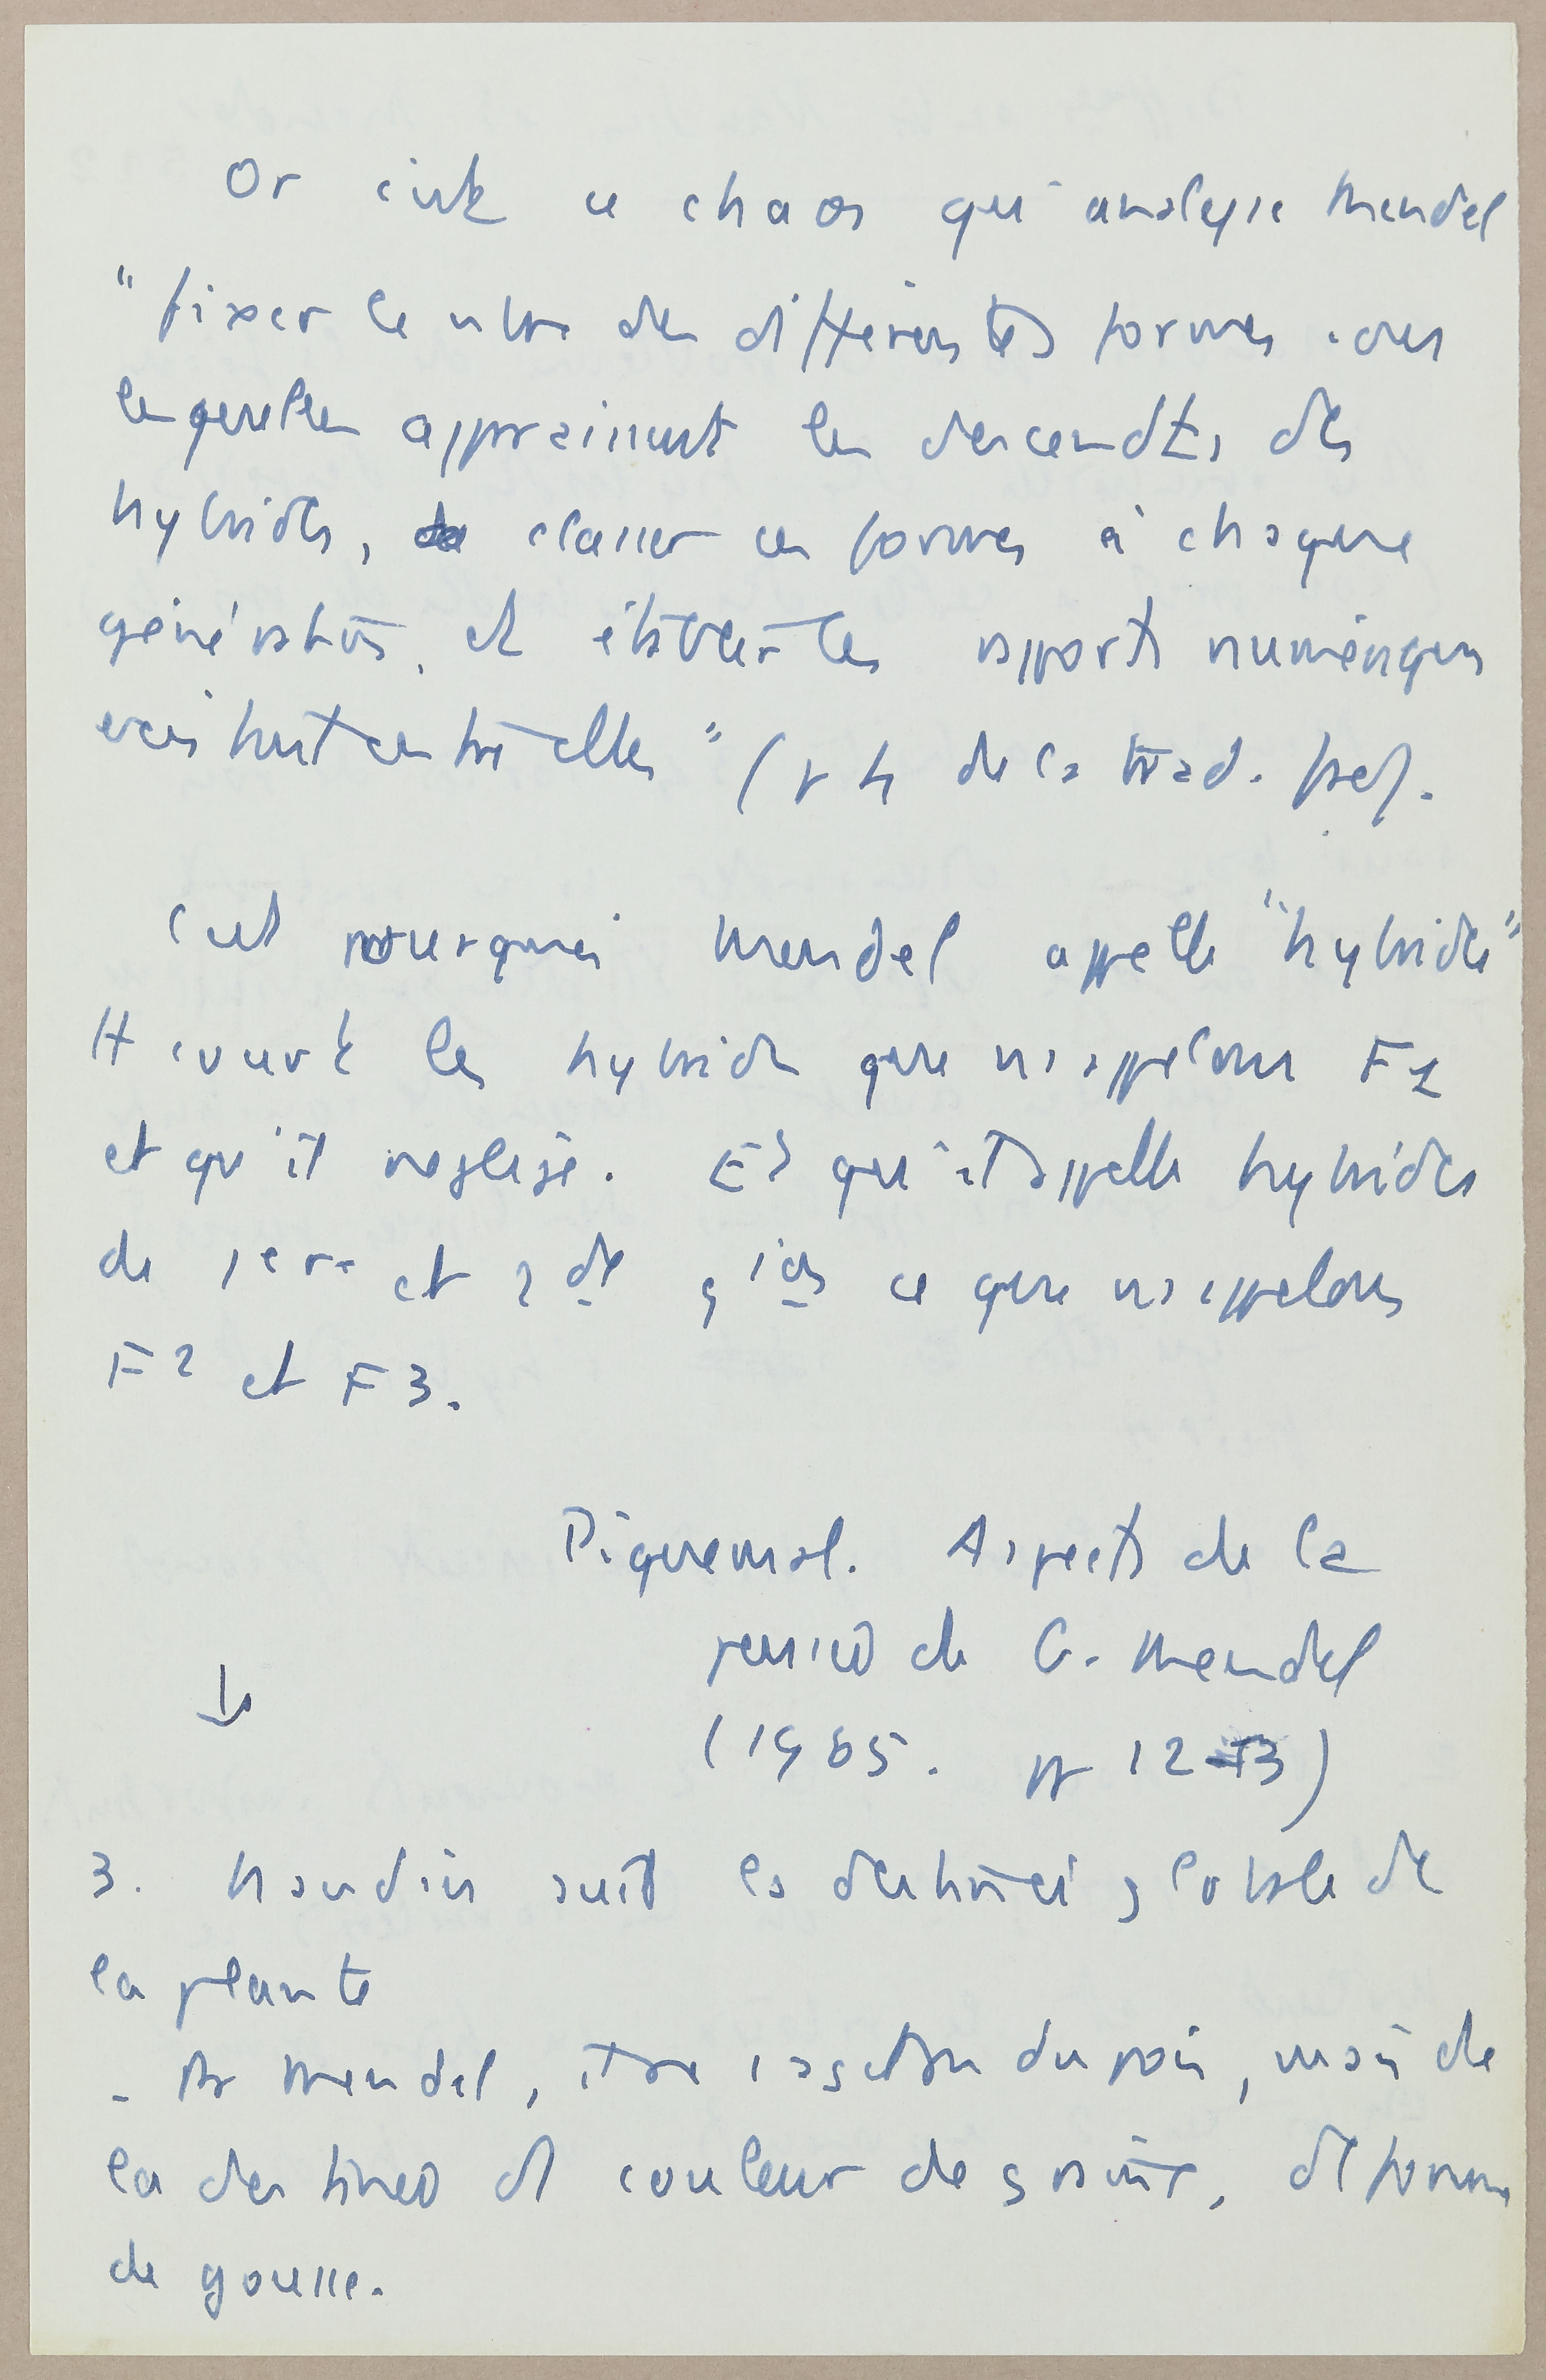 Or c'est ce chaos qu'analyse Mendel
"fixer le nbre des différentes formes sous
lesquelles apparaissent les descendts des
hybrides, classer ces formes à chaque
génération, et établir les rapports numériques
existant entre elles" (p 4 de la trad. frse).
C'est pourquoi Mendel appelle "hybrides"
tt court les hybrides que ns appelons F1
et qu'il néglige. Et qu'il appelle hybrides
de 1ere et 2de gion ce que ns appelons
F2 et F3.
Piquemal. Aspects de la
pensée de G. Mendel
(1965. pp 12-13)
3. Naudin suit la destinée globale de
la plante
- Pr Mendel, il ne s'agit du pois, mais de
la destinée de couleur de graine, de forme
de gousse.